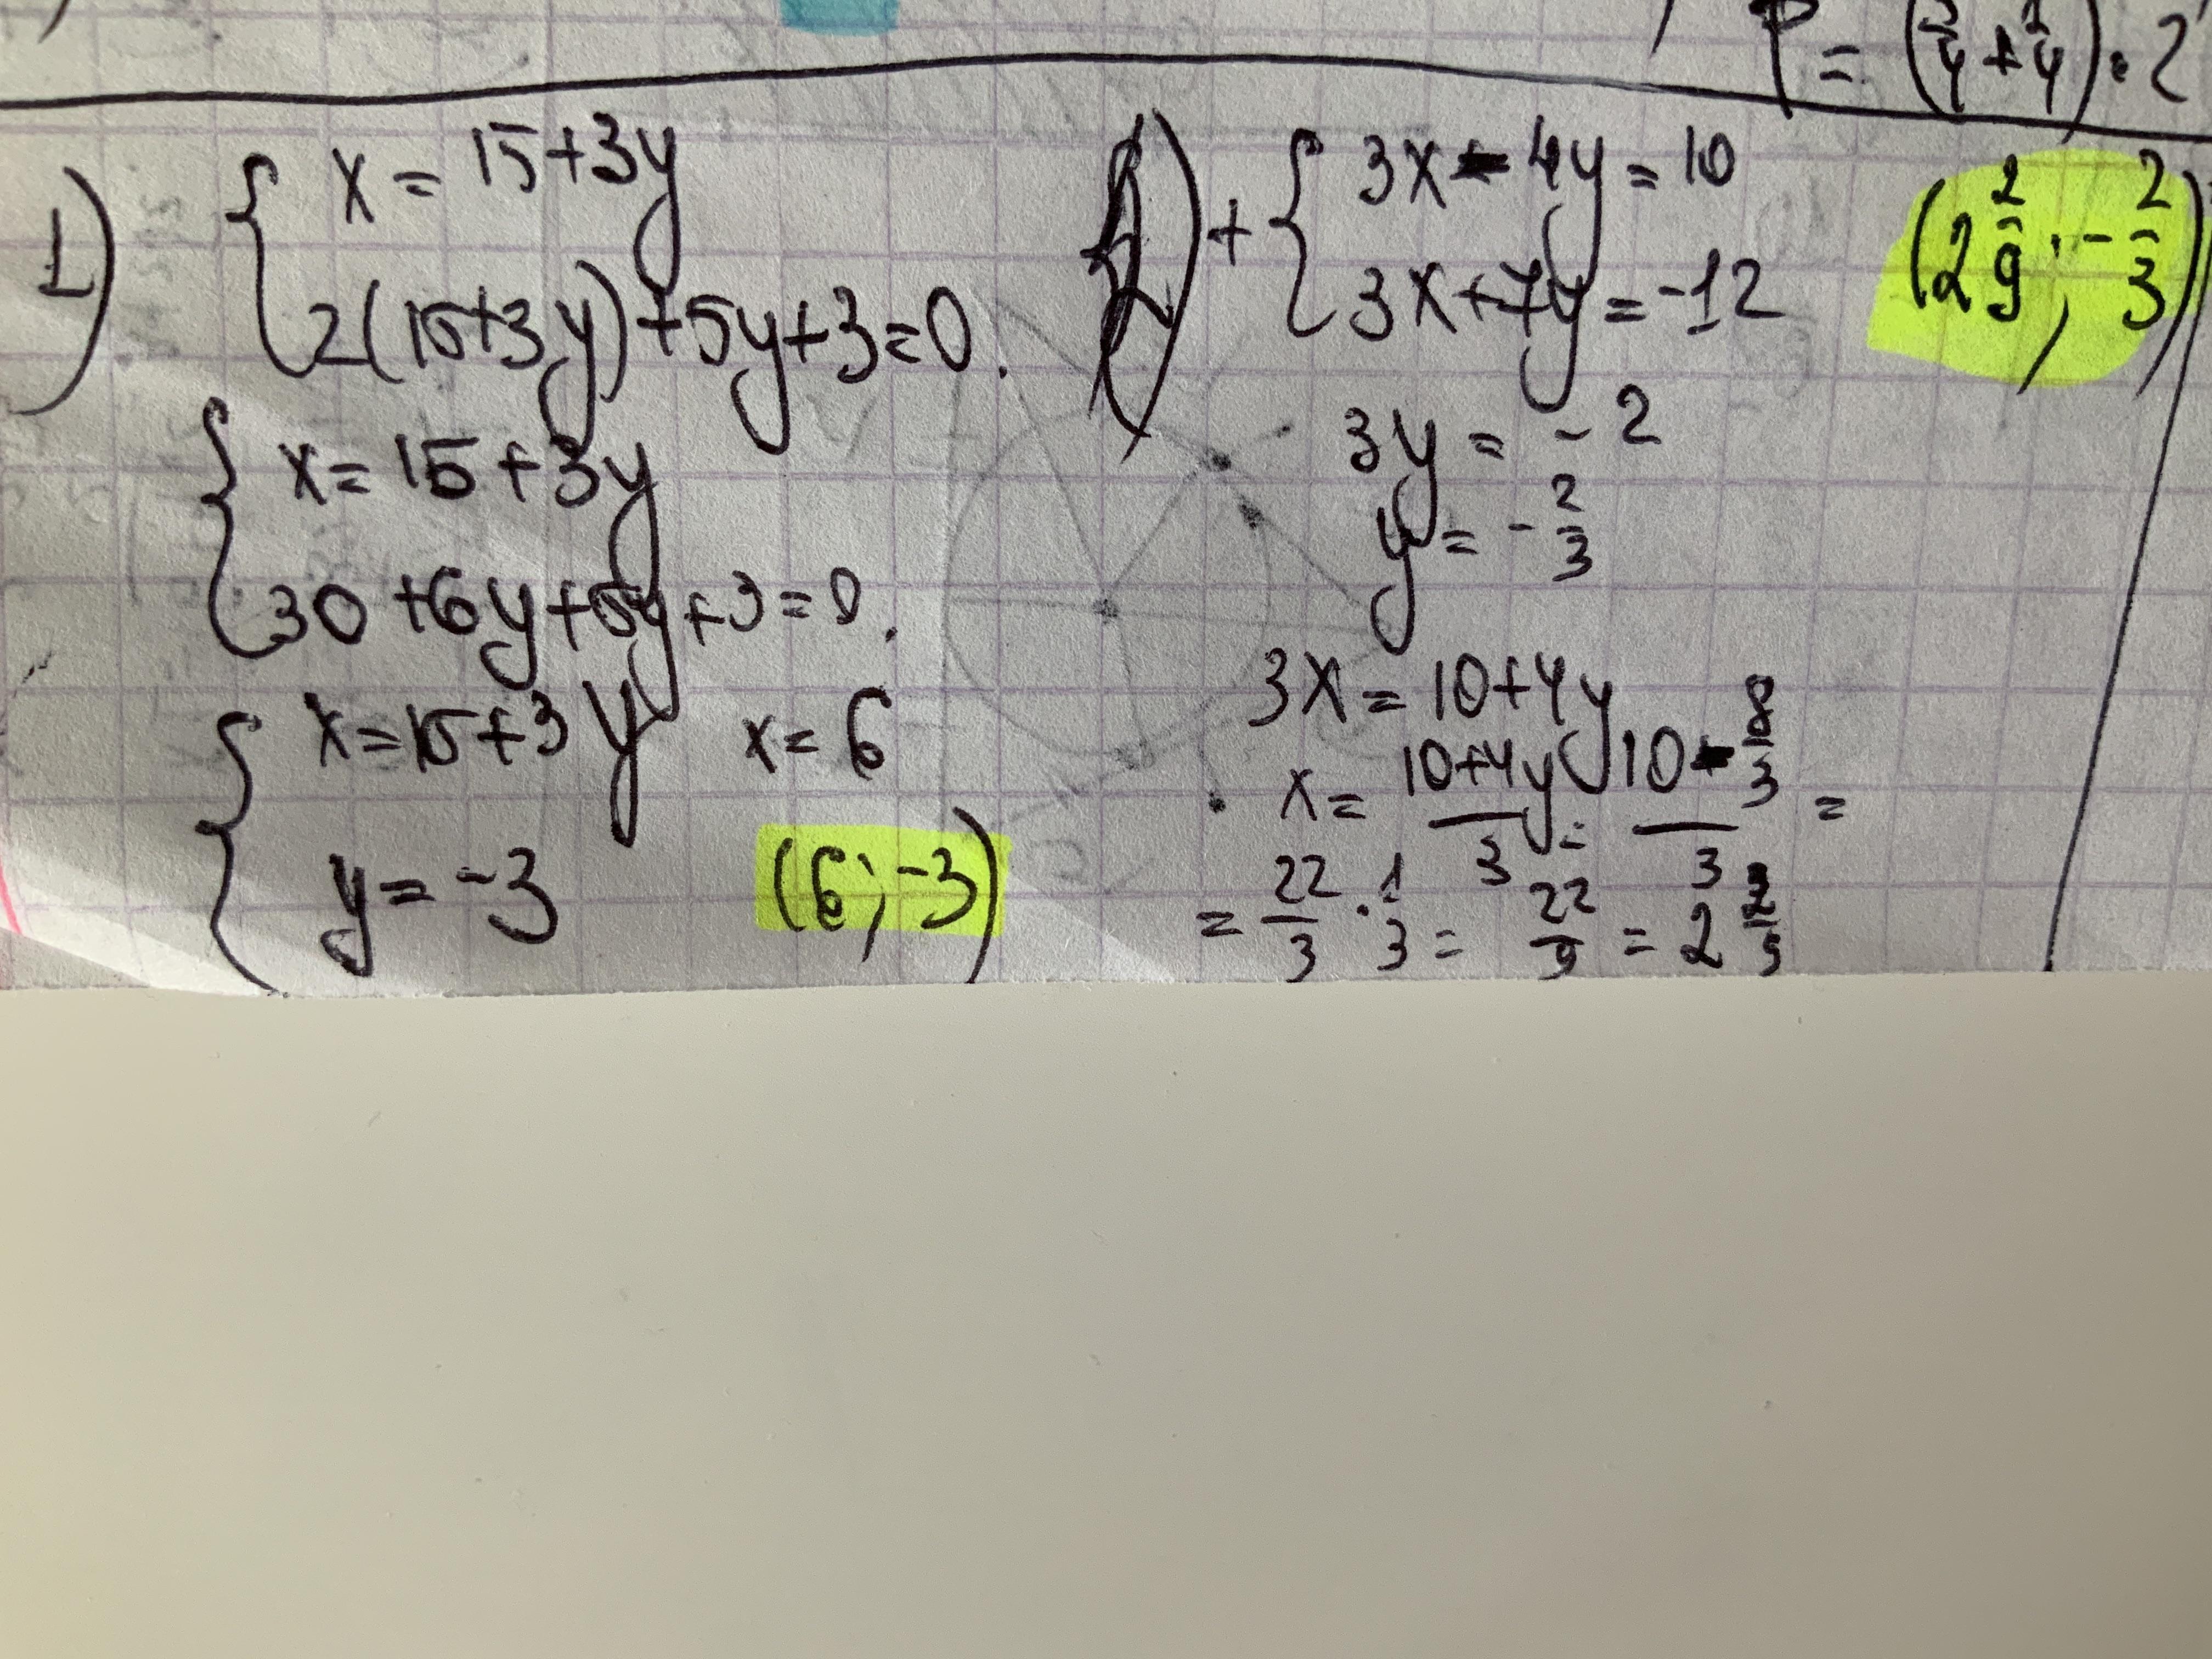 P = (3/4 + 2/4) · 2
1) { x = 15+3y
2(15+3y)+5y+3=0.
{ x = 15+3y
30+6y+5y+3=0.
{ x=15+3y x=6
y = -3 (6; -3)
2) + { 3x - 4y = 10
3x+7y = -12 (2 2/9; - 2/3)
3y = -2
y = - 2/3
3x = 10+4y
x = (10+4y)/3 = (10 - 8/3)/3 =
= 22/3 · 1/3 = 22/9 = 2 2/9